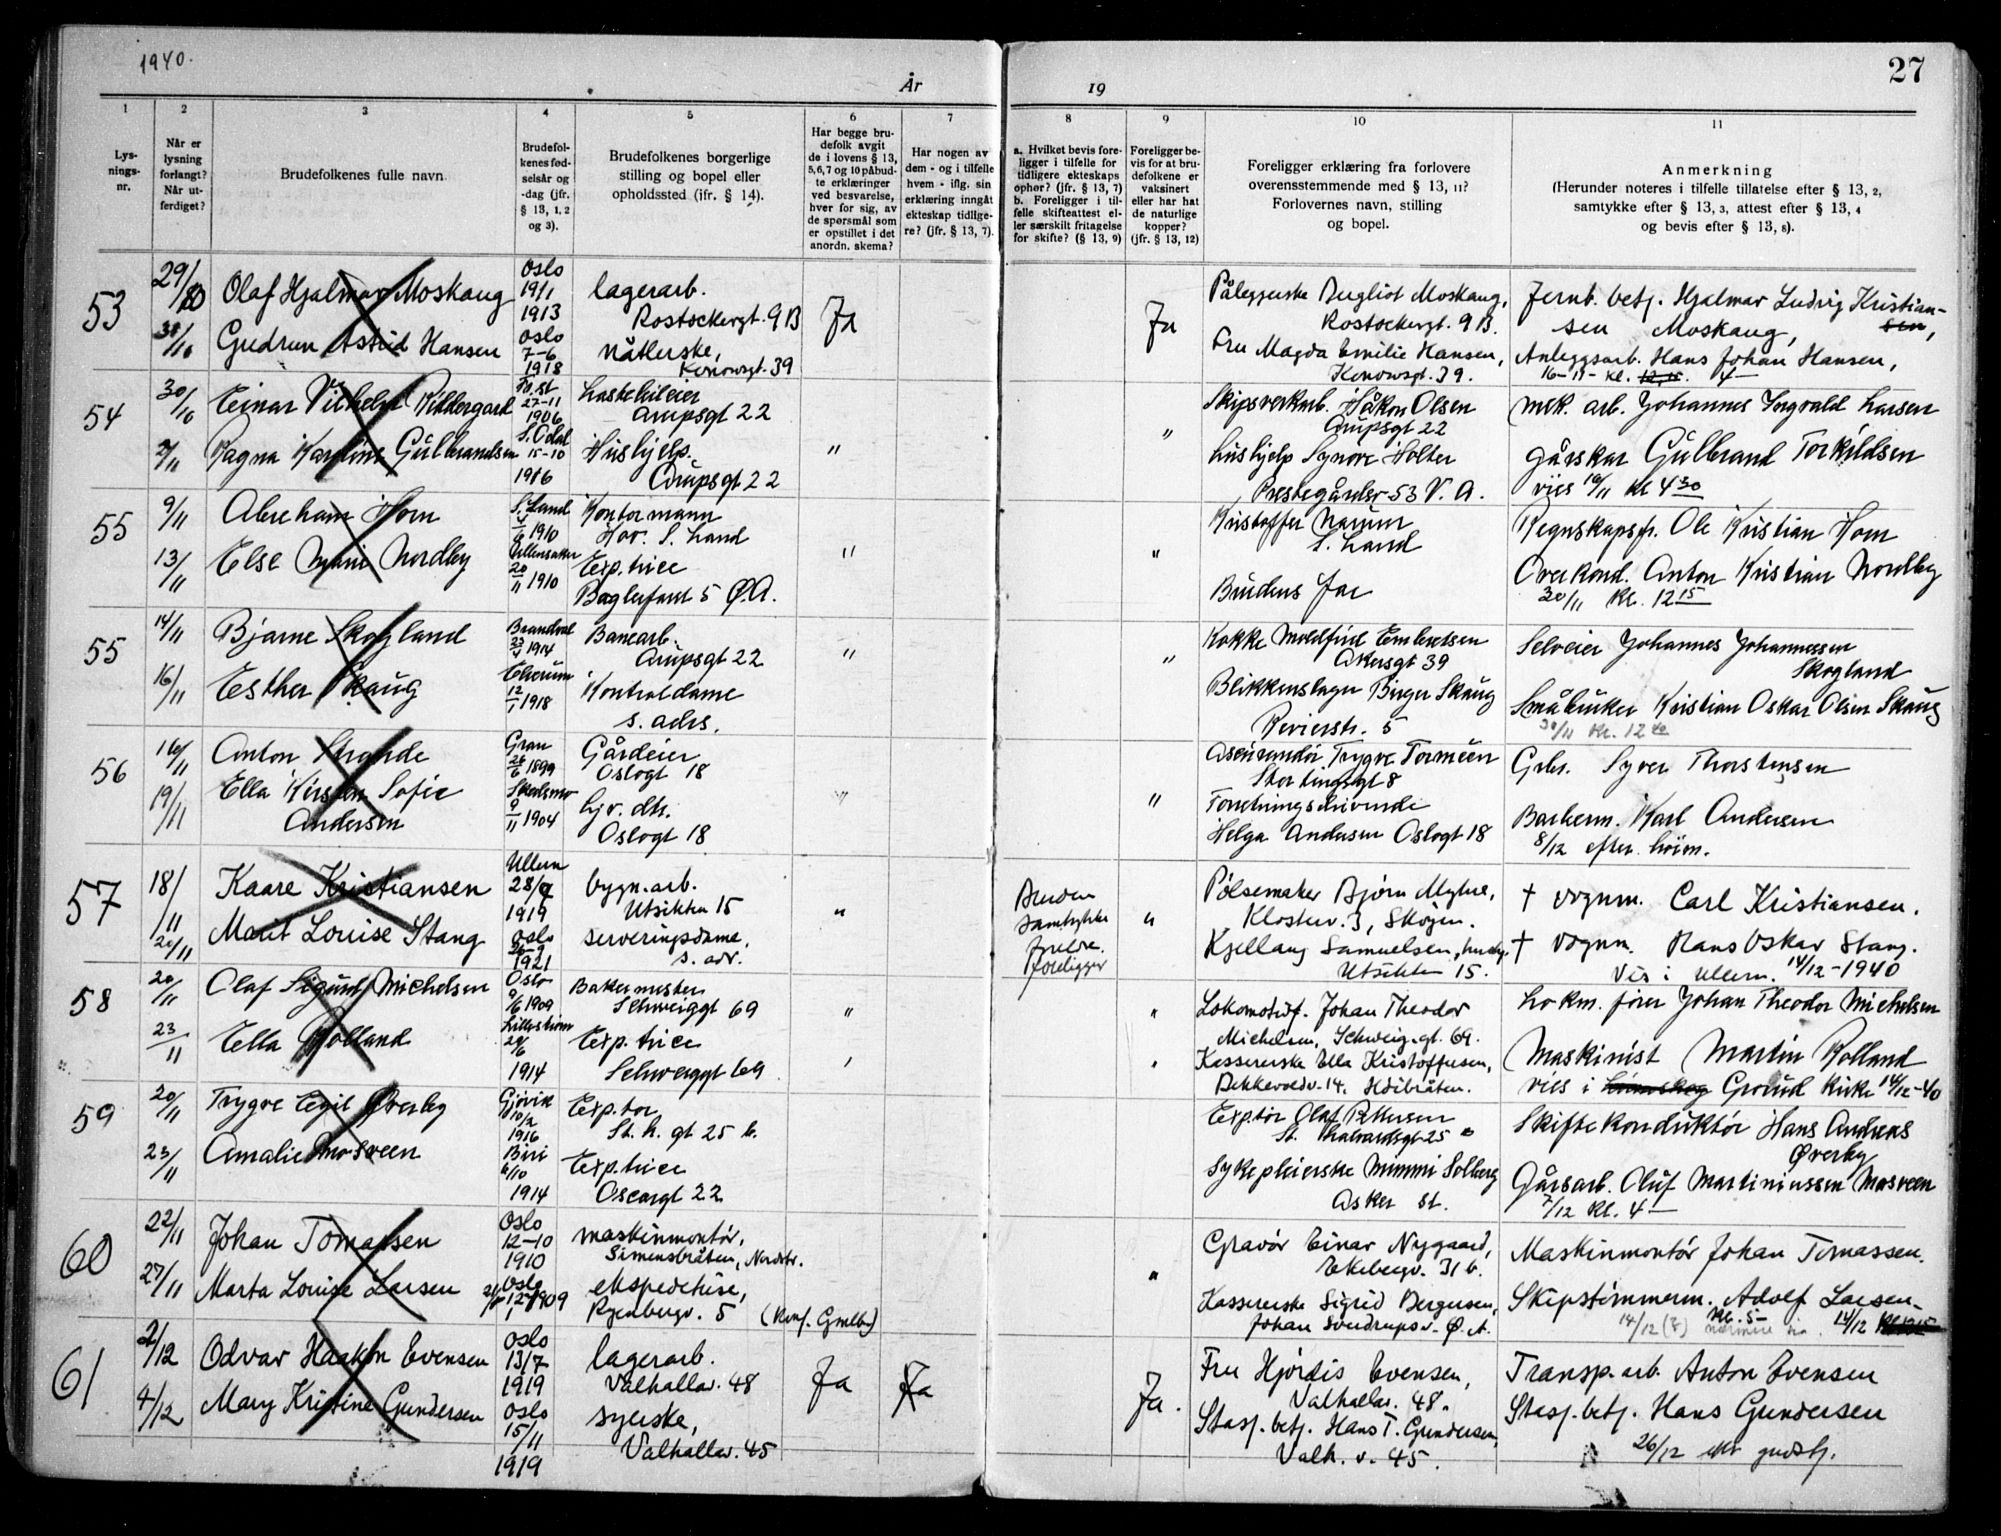 1940.
År
19
27
1
Lys-
nings-
nr.
2
Når er
lysning
forlangt?
Når ut-
ferdiget?
3
Brudefolkenes fulle navn
4
Brudefol-
kenes fød-
selsår og
-dag (jfr.
§ 13, 1, 2
og 3).
5
Brudefolkenes borgerlige
stilling og bopel eller
opholdssted (jfr. § 14).
6
Har begge bru-
defolk avgit
de i lovens § 13,
5,6,7 og 10 påbud-
te erklæringer
ved besvarelse,
hver for sig, av
de spørsmål som
er opstillet i det
anordn. skema?
7
Har nogen av
dem - og i tilfelle
hvem - iflg. sin
erklæring inngåt
ekteskap tidlige-
re? (jfr. § 13, 7).
8
a. Hvilket bevis fore-
ligger i tilfelle for
tidligere ekteskaps
ophør? (jfr. § 13, 7)
b. Foreligger i til-
felle skifteattest el-
ler særskilt fritagelse
for skifte? (§ 13, 9)
9
Foreligger be-
vis for at bru-
defolkene er
vaksinert
eller har hat
de naturlige
kopper?
(jfr. § 13, 12)
10
Foreligger erklæring fra forlovere
overensstemmende med § 13, 11?
Forlovernes navn, stilling
og bopel.
11
Anmerkning
(Herunder noteres i tilfelle tillatelse efter § 13, 2,
samtykke efter § 13, 3, attest efter § 13, 4
og bevis efter § 13, 8).
53
29/10
Olaf Hjalmar Moskaug
Oslo
19/1
1913
lagerarb.
Rostockergt. 9B
Ja
Ja
Moskaug,
Rostockergt. 9B.
Jernb. betj. Hjalmar Ludvig Kristian-
sen Moskaug,
30/10
Gudrun Astrid Hansen
Oslo
7-6
1918
nåtlerske,
Konowsgt. 39
Fru Magda Emilie Hansen,
Konowsgt. 39.
Anleggsarb. Hans Johan Hansen,
16-11- kl. 12,15. 4-
54
30/10
Einar Vilhelm
27-11
1906
Lastebileier
Arupsgt 22
"
"
Skipsverkarb. Håkon Olsen
Arupsgt 22
mek. arb. Johannes Ingvald Larsen
2/11
Ragna Karoline Gulbrandsen
S. Odal
15-10
1916
Hushjelp.
Arupsgt 22
hushjelp Synove Holter
53 V. A.
Gulbrand Torkildsen
vies 10/11 kl 4 30
55
9/11
Abraham Hom
S. Land
1910
Kontormann
Hov. S. Land
"
"
Kristoffer
S. Land
Regnskapsf. Ole Kristian Hom
13/11
Else Marie Nordby
Ullensaker
20/11 1910
Exp.trice
Baglerfaret 5 Ø.A.
Brudens far
Overkond. Anton Kristian Nordby
30/11 Kl. 12 15
55
14/11
Bjarne Skogland
Brandval
1914
Banearb.
Arupsgt 22
"
"
Kokke Embretsen
Akersgt 39
Selveier Johannes Johannessen
Skogland
16/11
Esther Skaug
Elverum
12/1 1918
Kontroldame
s. adrs.
Blikkenslager Birger Skaug
Revierstr. 5
Småbruker Kristian Oskar Olsen Skaug
30/11 Kl. 12
56
16/11
Anton Strande
Gran
26/6 1899
Gårdeier
Oslogt 18
"
"
Trygve
Stortingsgt 8
Grbr. Syver Thorstensen
19/11
Ella Kirsten Sofie
Andersen
Skedsmo
9/11 1904
hjv. dtr.
Oslogt 18
Forretningsdrivende
Helga Andersen Oslogt 18
Barberm. Karl Andersen
8/12 efter høim.
57
18/11
Kaare Kristiansen
Ullern
1919
bygn.arb.
Utsikten 15
"
Bruden
samtykke
foreldre.
foreligger
"
Pølsemaker Bjørn Myhre,
Klosterv. 3, Skøyen.
† vognm. Carl Kristiansen.
20/11
Marit Louise Stang
Oslo
1921
serveringsdame,
s. adr.
Kjellaug Samuelsen,
Utsikten 15.
† vognm. Hans Oskar Stang.
Vies i Ullern. 14/12-1940
58
20/11
Olaf Sigurd Michelsen
Oslo
9/6 1909
Bakermester
Schweiggt 69
"
"
Lokomotivf. Johan Theodor
Michelsen, Schweig.gt. 69.
Lokm. fører Johan Theodor Michelsen
23/11
Ella Rolland
Lillestrøm
1914
Exp.trice
Schweiggt 69
Kassererske Ella Kristoffersen,
Bekkevoldv. 14. Høibråten.
Maskinist Martin Rolland
vies i Grorud Kirke 14/12-40
59
20/11
Trygve Egil Øverby
Gjøvik
10/2
1916
Exp.tør
St. h. gt 25 b.
Exp.tør Olaf Pettersen
St. Halvardsgt 25
Skiftekonduktør Hans Andreas
Øverby
23/11
Amalie Mosveen
Biri
6/10
1914
Exp.trice
Oscarsgt 22
Sykepleierske Mimmi Solberg
Asker st.
Gårdsarb. Oluf Martiniussen Mosveen
7/12 Kl. 4 -
60
22/11
Johan Tomassen
Oslo
12-10
1910
maskinmontør,
Simensbråten, Nordstr.
"
Gravør Einar Nygaard,
Ekebergv. 31 b.
Maskinmontør Johan Tomassen.
27/11
Marta Louise Larsen
Oslo
1909
ekspeditrise,
Ryenbergv. 5 (Konf. Gmlby)
Kassererske Sigrid Bergersen,
Johan Sverdrupsv. Ø. A.
Skipstømmerm. Adolf Larsen-
14/12 (?) Kl. 5- 14/12
61
2/12
Odvar Haakon Evensen
Oslo
13/7
1919
lagerarb.
Valhallav. 48
Ja
Ja
Ja.
Fru Hjørdis Evensen,
Valhallav. 48.
Transp. arb. Anton Evensen
4/12
Mary Kristine Gundersen
Oslo
15/11
1919
syerske,
Valhallav. 45
Stasj. betj. Hans T. Gundersen,
Valh. v. 45.
Stasj. betj. Hans Gundersen
26/12 ett. gudstj.